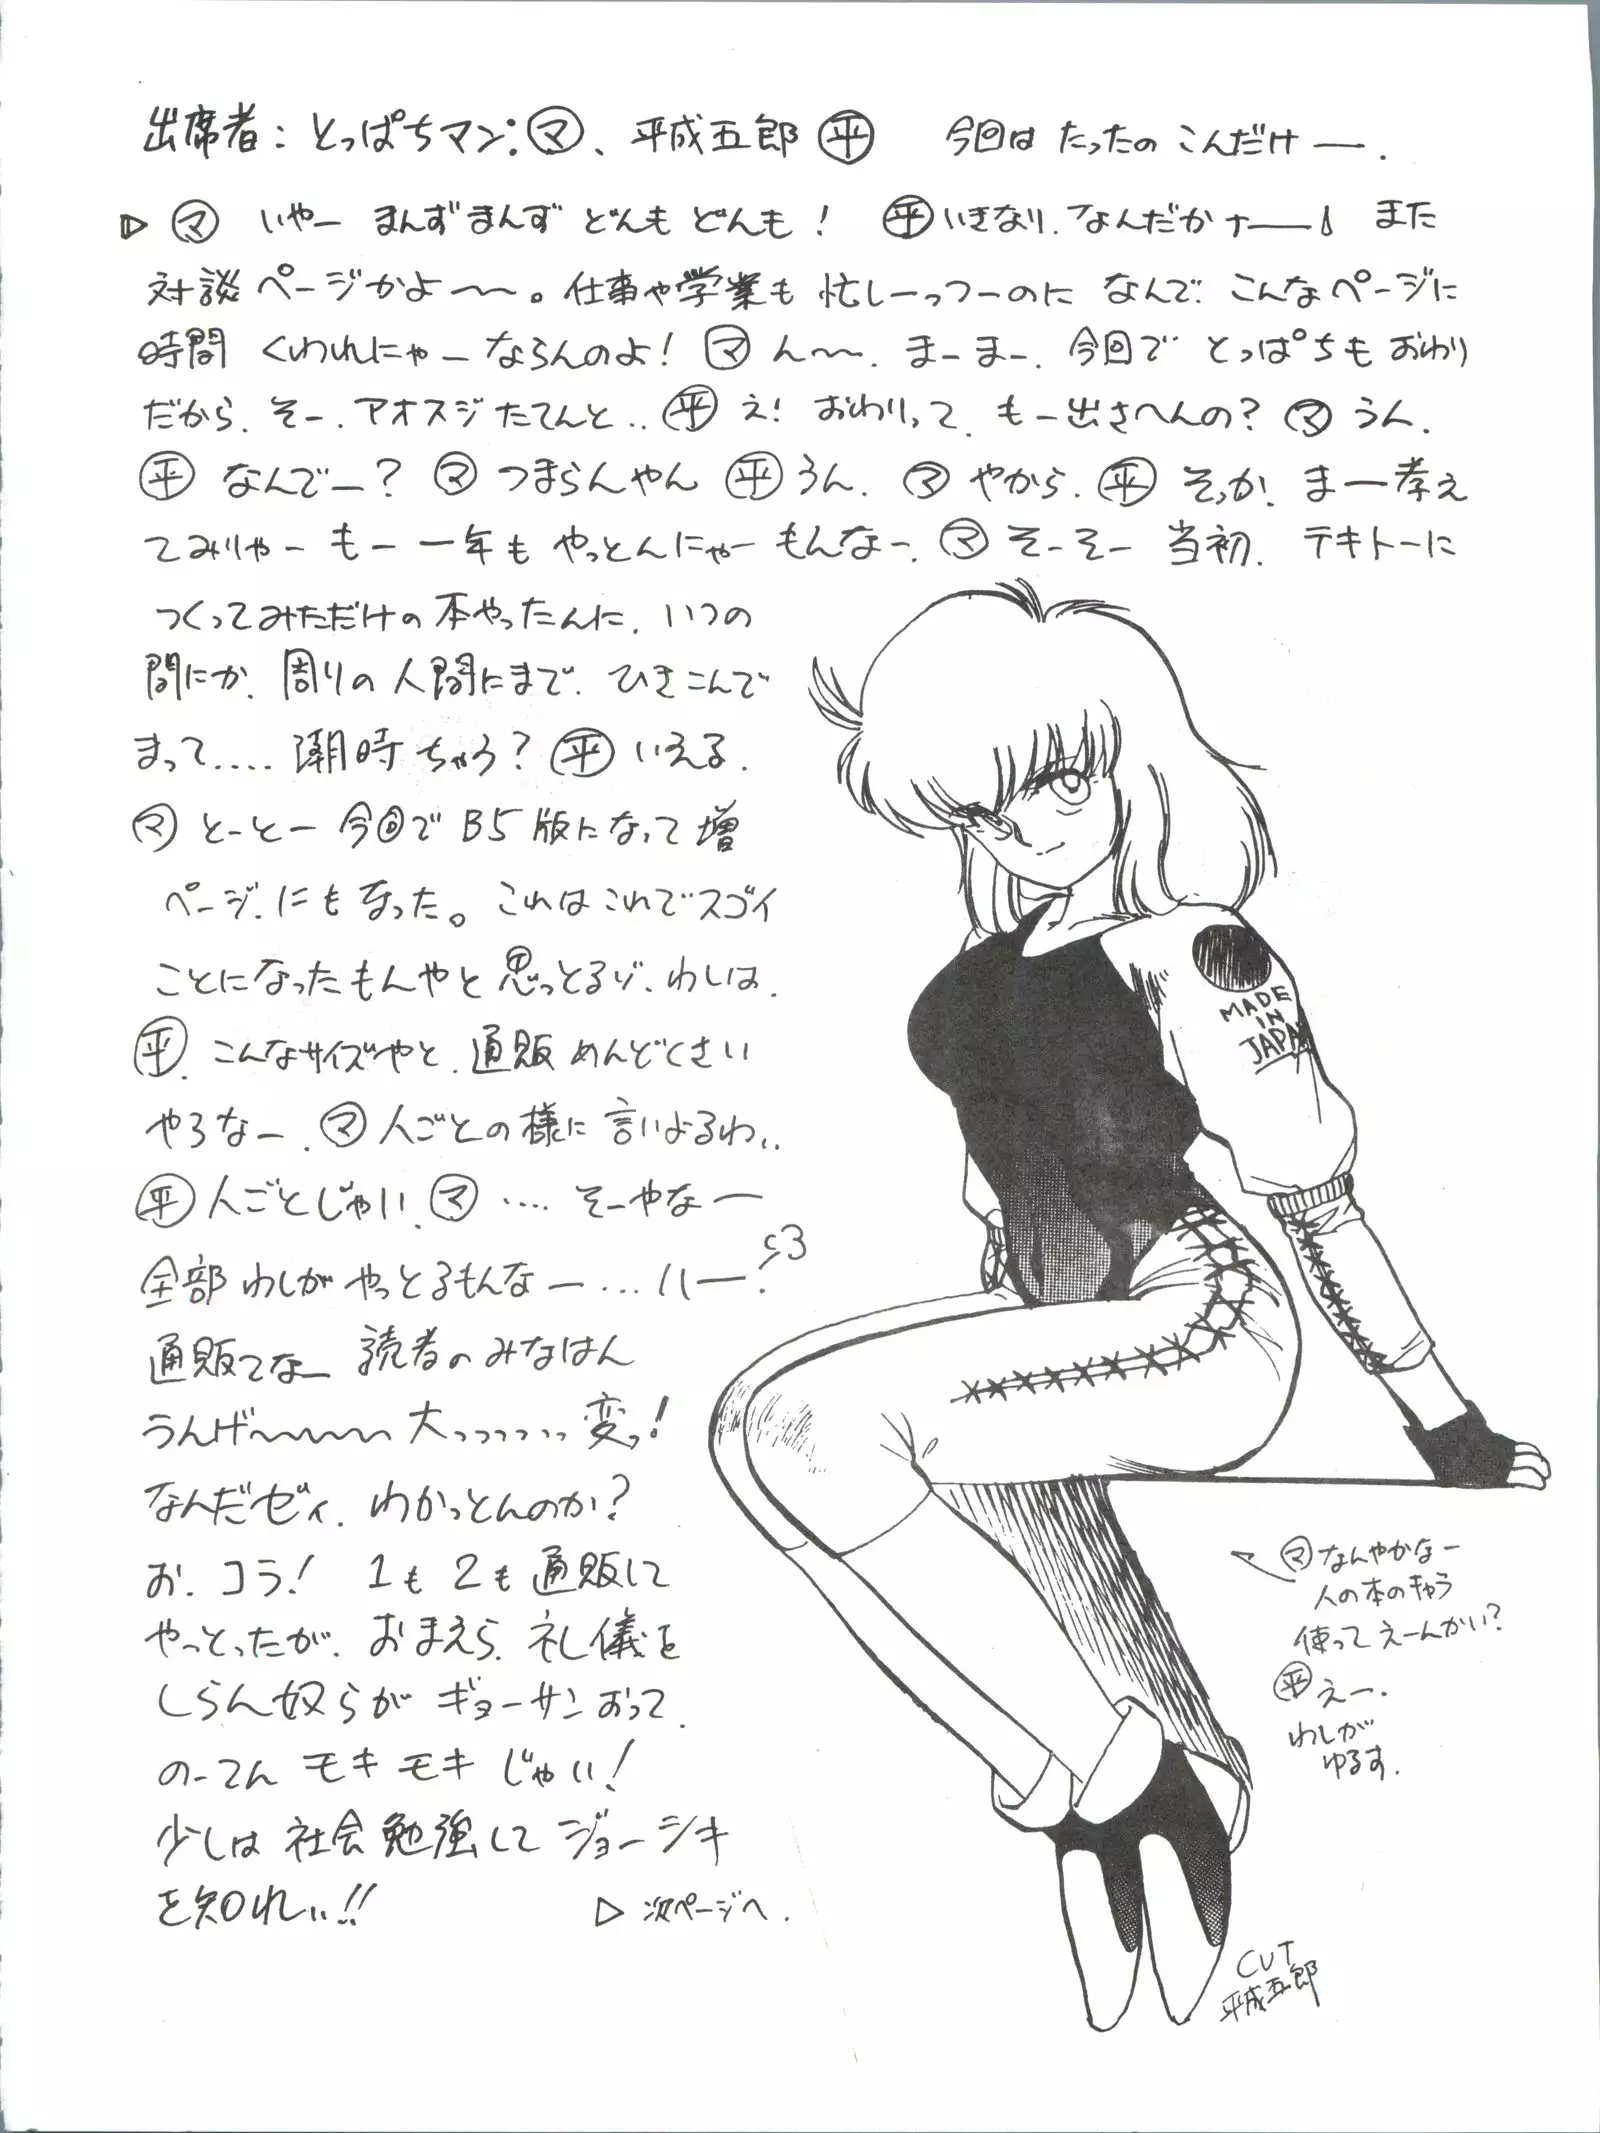 出席者：とっぱちマン：㋮、平成五郎 ㊉平 今回は たったの こんだけー.
▷ ㋮ いやー まんずまんず どんも どんも！ 平 いきなり、なんだかナー！ また
対談ページかよ〜〜。仕事や学業も 忙しーっつーのに なんで こんなページに
時間 くわれにゃーならんのよ！ ㋮ ん〜〜. まーまー. 今回で とっぱちも おわり
だから. そー. アオスジたてんと.. 平 え！ おわりって. もー出さへんの？ ㋮ うん.
平 なんでー？ ㋮ つまらんやん 平 うん. ㋮ やから. 平 そっか. まー考え
てみりゃー もー 一年も やっとんにゃー もんなー. ㋮ そーそー 当初. テキトーに
つくってみただけの 本やったんに. いつの
間にか. 周りの 人間にまで. ひきこんで
まって.... 潮時 ちゃう？ 平 いえる.
㋮ とーとー 今回で B5版になって 増
ページ. にもなった。これはこれでスゴイ
ことになったもんやと 思っとるゾ. わしは.
平. こんなサイズやと. 通販 めんどくさい
やろなー. ㋮ 人ごとの様に 言いよるわ..
平 人ごとじゃい. ㋮ .... そーやなー
全部 わしが やっとるもんなー... ハー.
通販てなー 読者の みなはん
うんげ〜〜〜〜 大っっっっっっ 変っ！
なんだゼィ. わかっとんのか？
お. コラ！ 1も 2も 通販して
やっとったが. おまえら. 礼儀を
しらん奴らが ギョーサン おって.
のーてん モキモキ じゃい！
少しは 社会勉強して ジョーシキ
を知れぃ!!
▷ 次ページへ.
MADE
IN
JAPAN
㋮ なんやかなー
人の本のキャラ
使って えーんかい？
平 えー.
わしが
ゆるす.
CUT
平成五郎